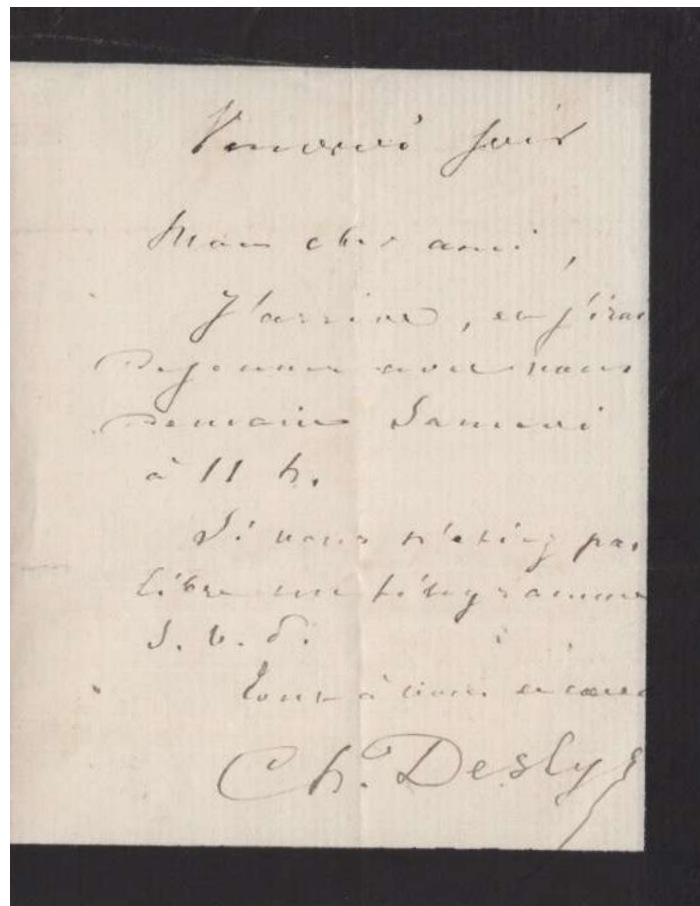 Vendredi soir
Mon cher ami,
J'arrive, et j'irai
dejeuner avec vous
demain Samedi
à 11 h.
Si vous n'etiez pas
libre un télégramme
S. v. p.
Tout à vous de coeur
Ch. Deslys